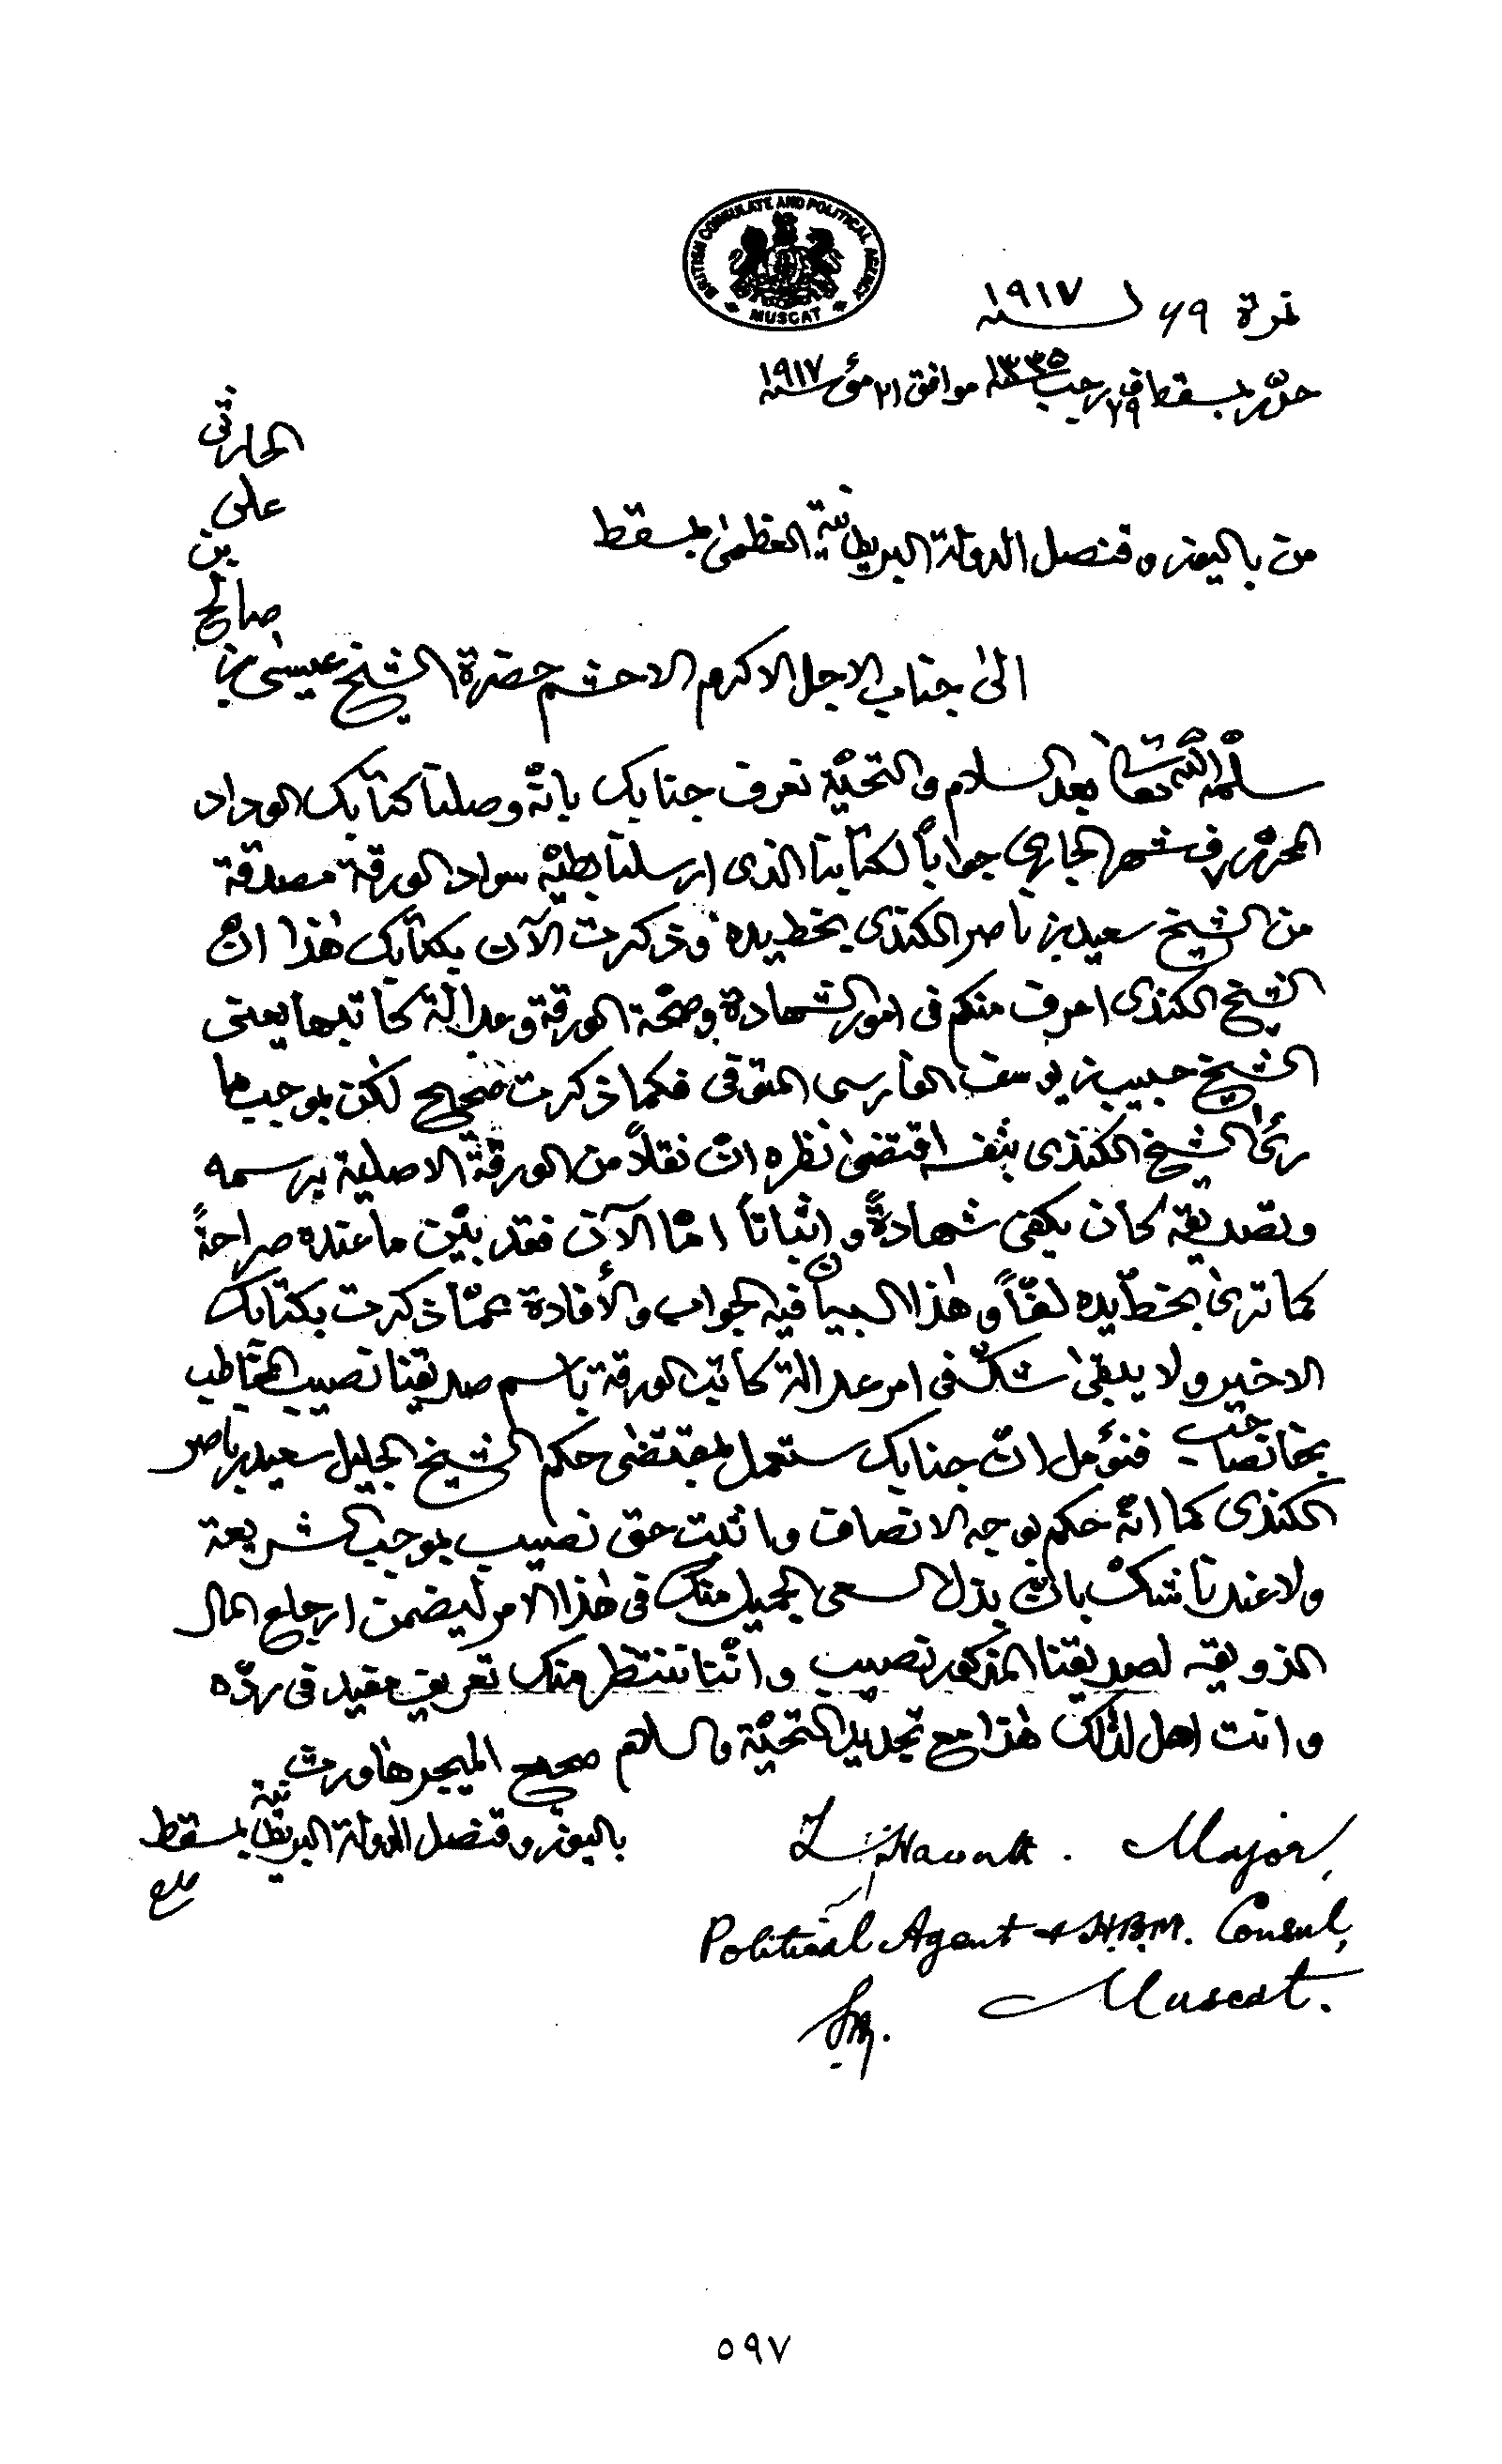 BRITISH CONSULATE AND POLITICAL AGENCY
MUSCAT
نمرة ٦٩ لسنه ١٩١٧
حرّر بمسقط في ٢٩ رجب سنه ١٣٣٥ موافق ٢١ مئ سنه ١٩١٧
من باليوز و قنصل الدولة البريطانية العظمىٰ بمسقط
الىٰ جناب الاجل الاكرم الاحشم حضرة الشيخ عيسىٰ بن
صالح
بن
على
الحارثى
سلّمه اللّه تعالىٰ بعد السلام والتحيّة نعرف جنابك بانّه وصلنا كتابك الوداد
المحرّر في شهر الجارى جواباً لكتابنا الذى ارسلنا بطيّه سواد الورقة مصدقة
من الشيخ سعيد بن ناصر الكندى بخط يده وذكرت الآن بكتابك هٰذا انّ
الشيخ الكندى اعرف منكم فى امور الشهادة وصحّة الورقة وعدالة كاتبها يعنى
الشيخ حبيب بن يوسف الفارسى المتوفى فكما ذكرت صحيح لٰكن بموجب ما
رئىٰ الشيخ الكندى بنفسه اقتضىٰ نظره انّ نقلاً من الورقة الاصلية برسمه
وتصديقه كان يكفى شهادةً و اثباتاً امّا الآن فقد بيّن ما عنده صراحةً
كما ترىٰ بخطّ يده لفّاً و هٰذا البيان فيه الجواب والأفادة عمّا ذكرت بكتابك
الاخير ولا يبقىٰ شكّ فى امر عدالة كاتب الورقة باسم صديقنا نصيب المخاطب
بخانصاحب فنؤمل انّ جنابك ستعمل بمقتضىٰ حكم الشيخ الجليل سعيد بن ناصر
الكندى كما انّه حكم بوجه الانصاف واثبت حق نصيب بموجب الشريعة
ولا عندنا شكّ بانّ بذل السعى الجميل منك فى هٰذا الامر ليضمن ارجاع المال
لصديقنا المذكور نصيب و انّنا ننتظر منك تعريف مفيد فى ردّه
و انت اهل لذٰلك هٰذا مع تجديد التحيّة والسلام صحيح الميجر هاورث
باليوز و قنصل الدولة البريطانية بمسقط
L Haworth. Major,
Political Agent & H.B.M. Consul,
Muscat.
٥٩٧